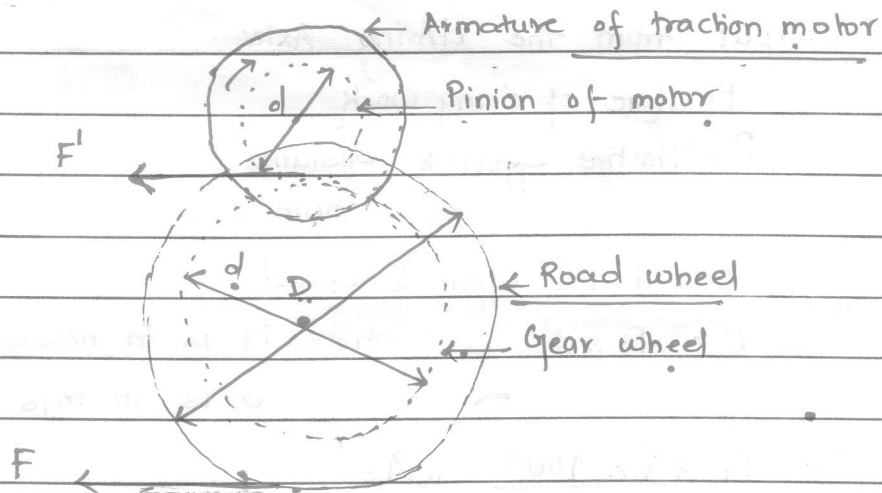 Armature of traction motor
d
Pinion of motor
F'
d
D
Road wheel
Gear wheel
F